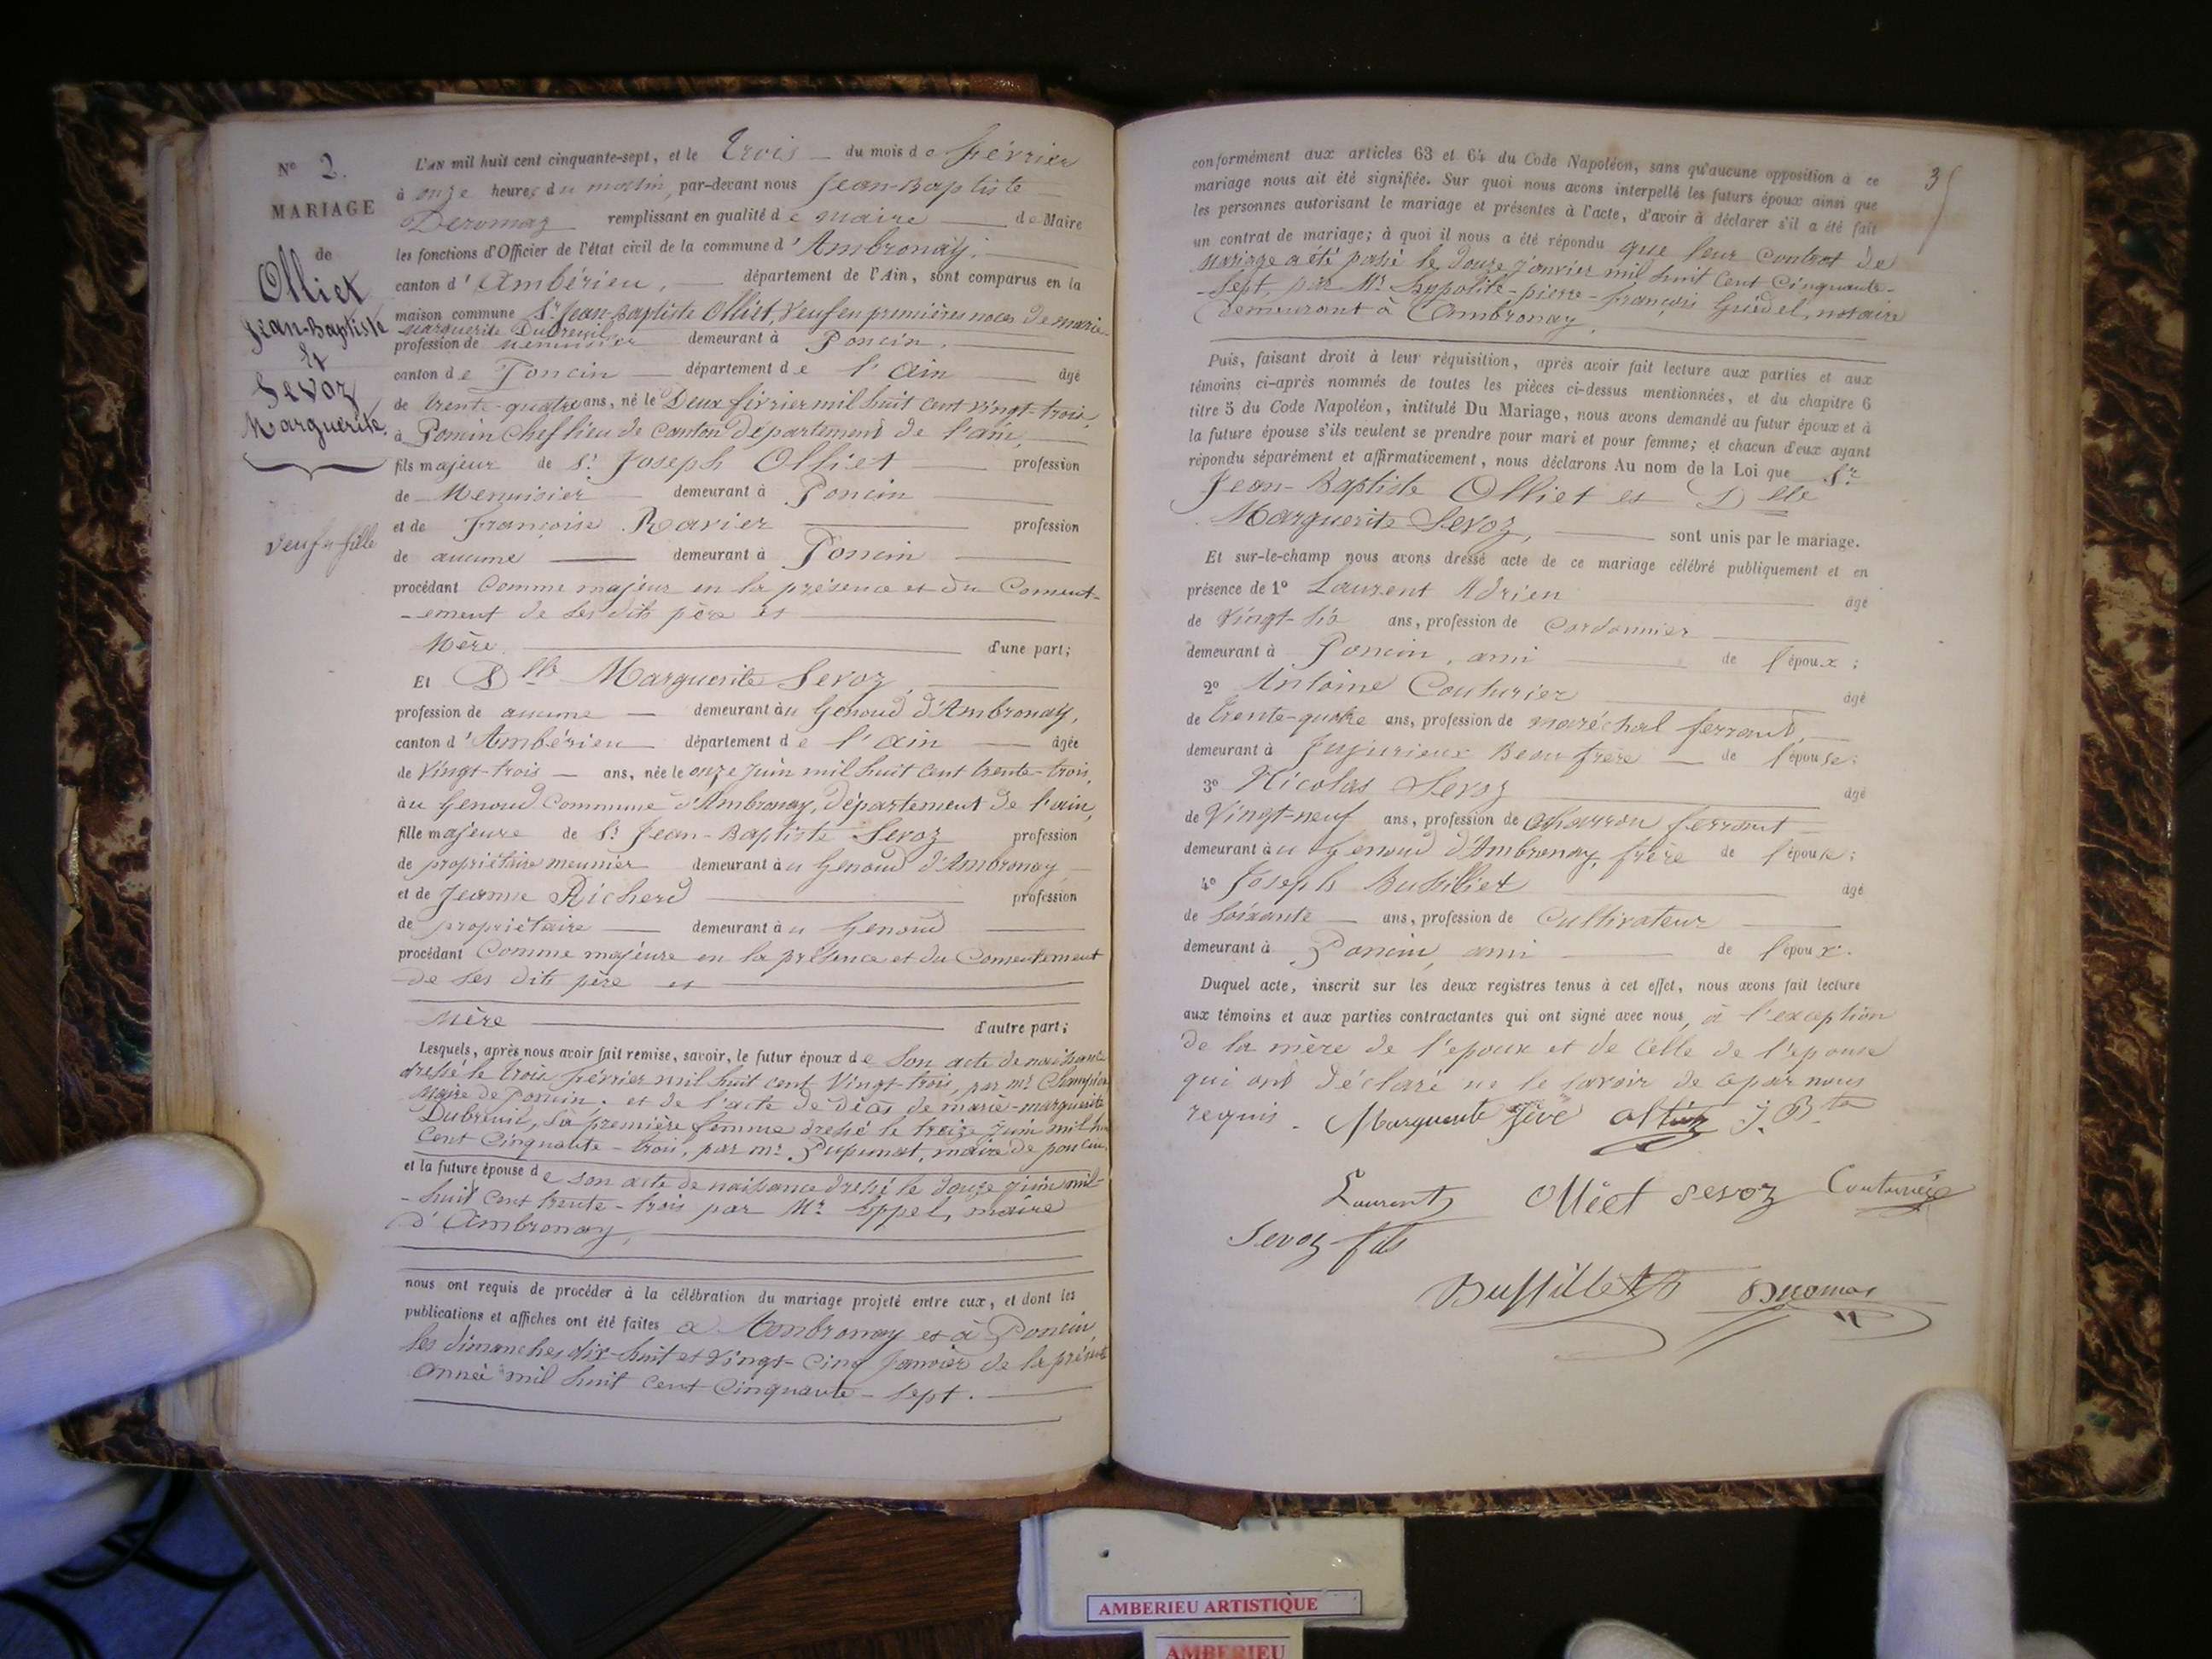 N° 2.
MARIAGE
de
Olliet
Jean-Baptiste
Et
Sevoz
Marguerite
veuf & fille
L'AN mil huit cent cinquante-sept, et le trois du mois de février
à onze heures du matin, par-devant nous Jean-Baptiste
Deromaz remplissant en qualité de maire de Maire
les fonctions d'Officier de l'état civil de la commune d'Ambronay.
canton d'Ambérieu, département de l'Ain, sont comparus en la
maison commune Sr. Jean-Baptiste Olliet, veuf en premières noces de marie-
marguerite Dubreuil
profession de menuisier demeurant à Poncin.
canton de Poncin département de l'Ain âgé
de trente-quatre ans, né le Deux février mil huit cent vingt-trois,
à Poncin chef lieu de canton département de l'ain,
fils majeur de Sr. Joseph Olliet profession
de Menuisier demeurant à Poncin
et de Françoise Ravier profession
de aucune demeurant à Poncin
procédant comme majeur en la présence et du consent-
-ement de ses dits père et
Mère d'une part;
Et Dlle Marguerite Sevoz,
profession de aucune demeurant au Genoud d'Ambronay,
canton d'Ambérieu département de l'ain âgée
de vingt-trois ans, née le onze juin mil huit cent trente-trois,
au Genoud Commune d'Ambronay, département de l'ain,
fille majeure de Sr. Jean-Baptiste Sevoz profession
de propriétaire meunier demeurant au Genoud d'Ambronay
et de Jeanne Richerd profession
de propriétaire demeurant au Genoud
procédant comme majeure en la présence et du consentement
de ses dits père et
Mère d'autre part;
Lesquels, après nous avoir fait remise, savoir, le futur époux de son acte de naissance
dressé le trois février mil huit cent vingt-trois, par mr
maire de poncin. et de l'acte de décès de marie-marguerite
Dubreuil, sa première femme dressé le treize juin mil huit
cent cinquante-trois, par mr Pupunat, maire de poncin.
et la future épouse de son acte de naissance dressé le douze juin mil-
-huit cent trente-trois par Mr Eppel, maire
d'Ambronay,
nous ont requis de procéder à la célébration du mariage projeté entre eux, et dont les
publications et affiches ont été faites à Ambronay et à Poncin
les dimanches dix-huit et vingt-cinq janvier de la présente
année mil huit cent cinquante-sept.
3
conformément aux articles 63 et 64 du Code Napoléon, sans qu'aucune opposition à ce
mariage nous ait été signifiée. Sur quoi nous avons interpellé les futurs époux ainsi que
les personnes autorisant le mariage et présentes à l'acte, d'avoir à déclarer s'il a été fait
un contrat de mariage; à quoi il nous a été répondu que leur contrat de
mariage a été passé le douze janvier mil huit cent cinquante-
-sept, par Mr hypolite-pierre-françois Guédel, notaire
demeurant à Ambronay.
Puis, faisant droit à leur réquisition, après avoir fait lecture aux parties et aux
témoins ci-après nommés de toutes les pièces ci-dessus mentionnées, et du chapitre 6
titre 5 du Code Napoléon, intitulé Du Mariage, nous avons demandé au futur époux et à
la future épouse s'ils veulent se prendre pour mari et pour femme; et chacun d'eux ayant
répondu séparément et affirmativement, nous déclarons Au nom de la Loi que Sr.
Jean-Baptiste Olliet et Dlle
Marguerite Sevoz, sont unis par le mariage.
Et sur-le-champ nous avons dressé acte de ce mariage célébré publiquement et en
présence de 1° Laurent Adrien âgé
de vingt-six ans, profession de Cordonnier
demeurant à Poncin, ami de l'époux;
2° Antoine Couturier âgé
de trente-quatre ans, profession de maréchal ferrant,
demeurant à Jujurieux Beau frère de l'épouse;
3° Nicolas Sevoz âgé
de vingt-neuf ans, profession de charron ferrant
demeurant au Genoud d'Ambronay, frère de l'épouse;
4° Joseph Bussilliet âgé
de soixante ans, profession de Cultivateur
demeurant à Poncin, ami de l'époux.
Duquel acte, inscrit sur les deux registres tenus à cet effet, nous avons fait lecture
aux témoins et aux parties contractantes qui ont signé avec nous, à l'exception
de la mère de l'époux et de celle de l'épouse
qui ont déclaré ne le savoir de ce par nous
requis. Marguerite J. Bte
Laurent Olliet Sevoz Couturier
Sevoz fils
Bussillet Deromas
AMBERIEU ARTISTIQUE
AMBERIEU